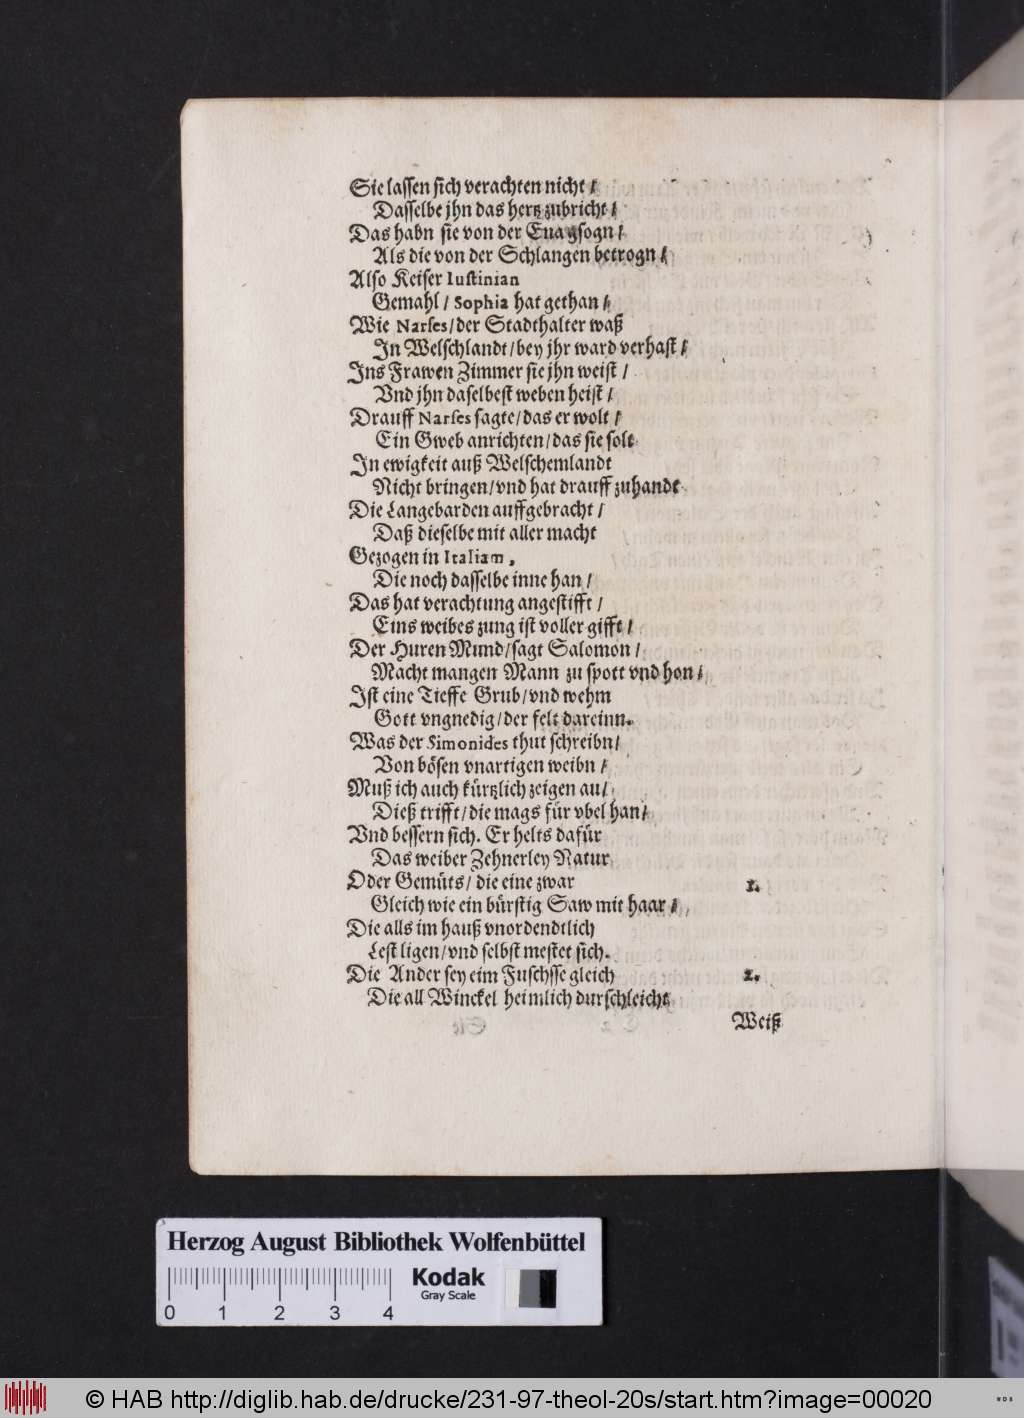 Sie lassen sich verachten nicht /
Dasselbe jhn das hertz zubricht /
Das habn sie von der Eua gsogn /
Als die von der Schlangen betrogn /
Also Keiser Iustinian
Gemahl / Sophia hat gethan /
Wie Narses / der Stadthalter waß
In Welschlandt / bey jhr ward verhast /
Ins Frawen Zimmer sie jhn weist /
Vnd jhn daselbest weben heist /
Drauff Narses sagte / das er wolt /
Ein Gweb anrichten / das sie solt
In ewigkeit auß Welschemlandt
Nicht bringen / vnd hat drauff zuhandt
Die Langebarden auffgebracht /
Daß dieselbe mit aller macht
Gezogen in Italiam,
Die noch dasselbe inne han /
Das hat verachtung angestifft /
Eins weibes zung ist voller gifft /
Der Huren Mund / sagt Salomon /
Macht mangen Mann zu spott vnd hon /
Ist eine Tieffe Grub / vnd wehm
Gott vngnedig / der felt dareinn.
Was der Simonides thut schreibn /
Von bösen vnartigen weibn /
Muß ich auch kürtzlich zeigen an /
Dieß trifft / die mags für vbel han /
Vnd bessern sich. Er helts dafür
Das weiber Zehnerley Natur
Oder Gemüts / die eine zwar 1.
Gleich wie ein bürstig Saw mit haar /
Die alls im hauß vnordendtlich
Lest ligen / vnd selbst mestet sich.
Die Ander sey eim Fuschsse gleich 2.
Die all Winckel heimlich durschleicht
Weiß
Herzog August Bibliothek Wolfenbüttel
Kodak
Gray Scale
0 1 2 3 4
© HAB http://diglib.hab.de/drucke/231-97-theol-20s/start.htm?image=00020